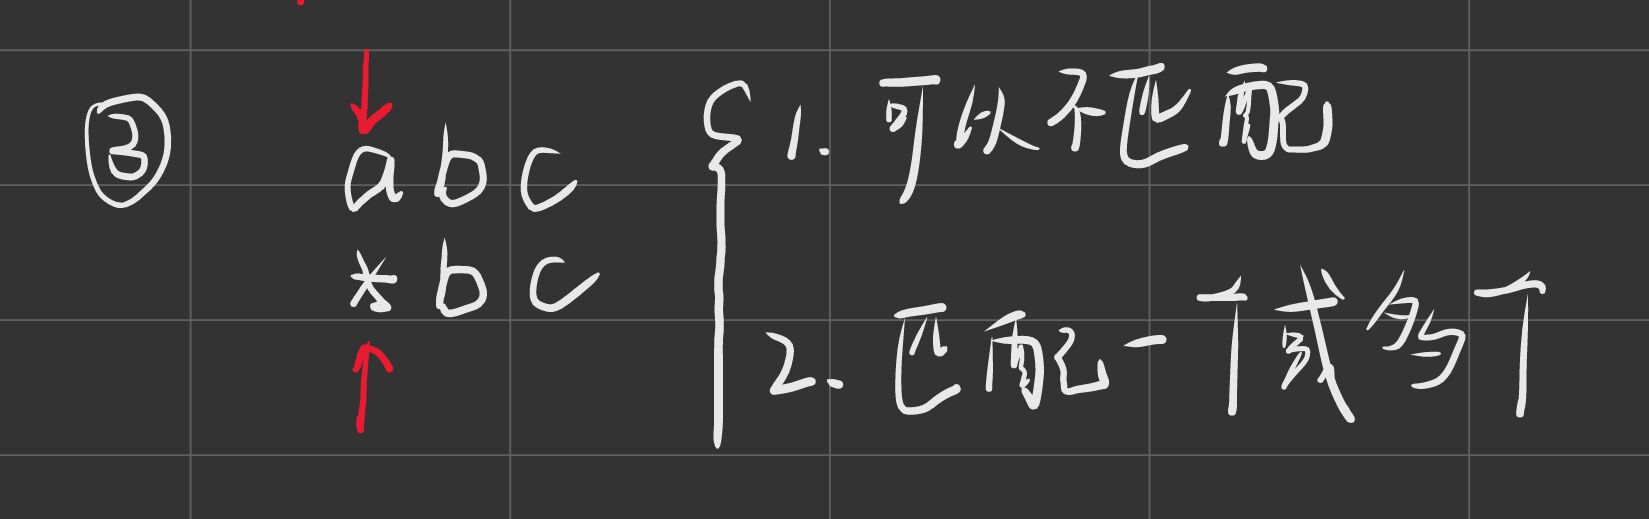 ③
abc
*bc
{ 1. 可以不匹配
2. 匹配一个或多个